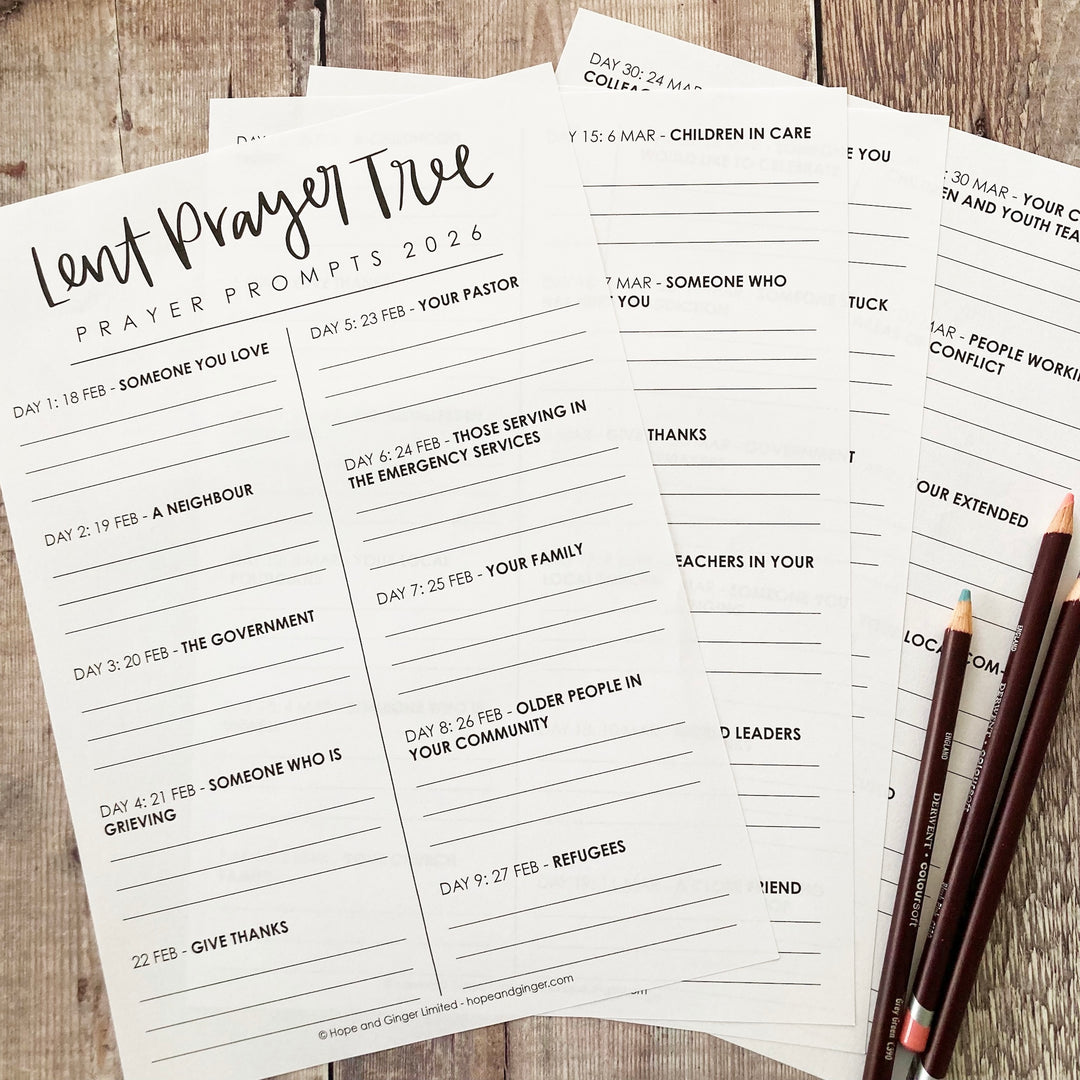 Lent Prayer Tree
PRAYER PROMPTS 2026
DAY 1: 18 FEB - SOMEONE YOU LOVE
DAY 2: 19 FEB - A NEIGHBOUR
DAY 3: 20 FEB - THE GOVERNMENT
DAY 4: 21 FEB - SOMEONE WHO IS
GRIEVING
22 FEB - GIVE THANKS
DAY 5: 23 FEB - YOUR PASTOR
DAY 6: 24 FEB - THOSE SERVING IN
THE EMERGENCY SERVICES
DAY 7: 25 FEB - YOUR FAMILY
DAY 8: 26 FEB - OLDER PEOPLE IN
YOUR COMMUNITY
DAY 9: 27 FEB - REFUGEES
© Hope and Ginger Limited - hopeandginger.com
DAY
Y 15: 6 MAR - CHILDREN IN CARE
7 MAR - SOMEONE WHO
YOU
THANKS
EACHERS IN YOUR
D LEADERS
RIEND
DAY 30: 24 MAR
E YOU
TUCK
T
: 30 MAR - YOUR C
EN AND YOUTH TEA
MAR - PEOPLE WORKI
CONFLICT
OUR EXTENDED
LOCA
COM-
ENGLAND
DERWENT • COLOURSOFT
Grey Green C390
ENGLAND
DERWENT • COLOURSOFT